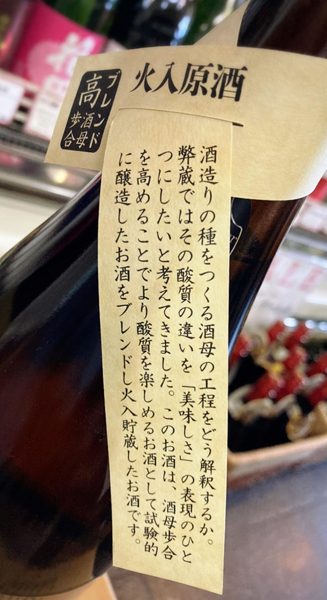 火入原酒
ブレンド
高酒母
歩合
酒造りの種をつくる酒母の工程をどう解釈するか。
弊蔵ではその酸質の違いを「美味しさ」の表現のひと
つにしたいと考えてきました。このお酒は、酒母歩合
を高めることでより酸質を楽しめるお酒として試験的
に醸造したお酒をブレンドし火入貯蔵したお酒です。